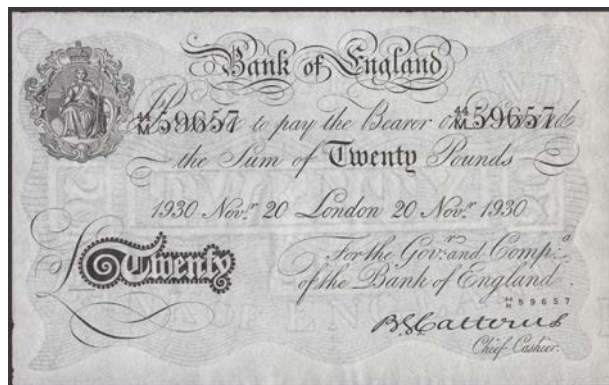 Bank of England
44 M 59657 to pay the Bearer on 44 M 59657
the Sum of Twenty Pounds
1930 Novr. 20 London 20 Novr. 1930
For the Govr. and Compa.
£ Twenty
of the Bank of England
44 M 59657
B G Catterns
Chief Cashier.